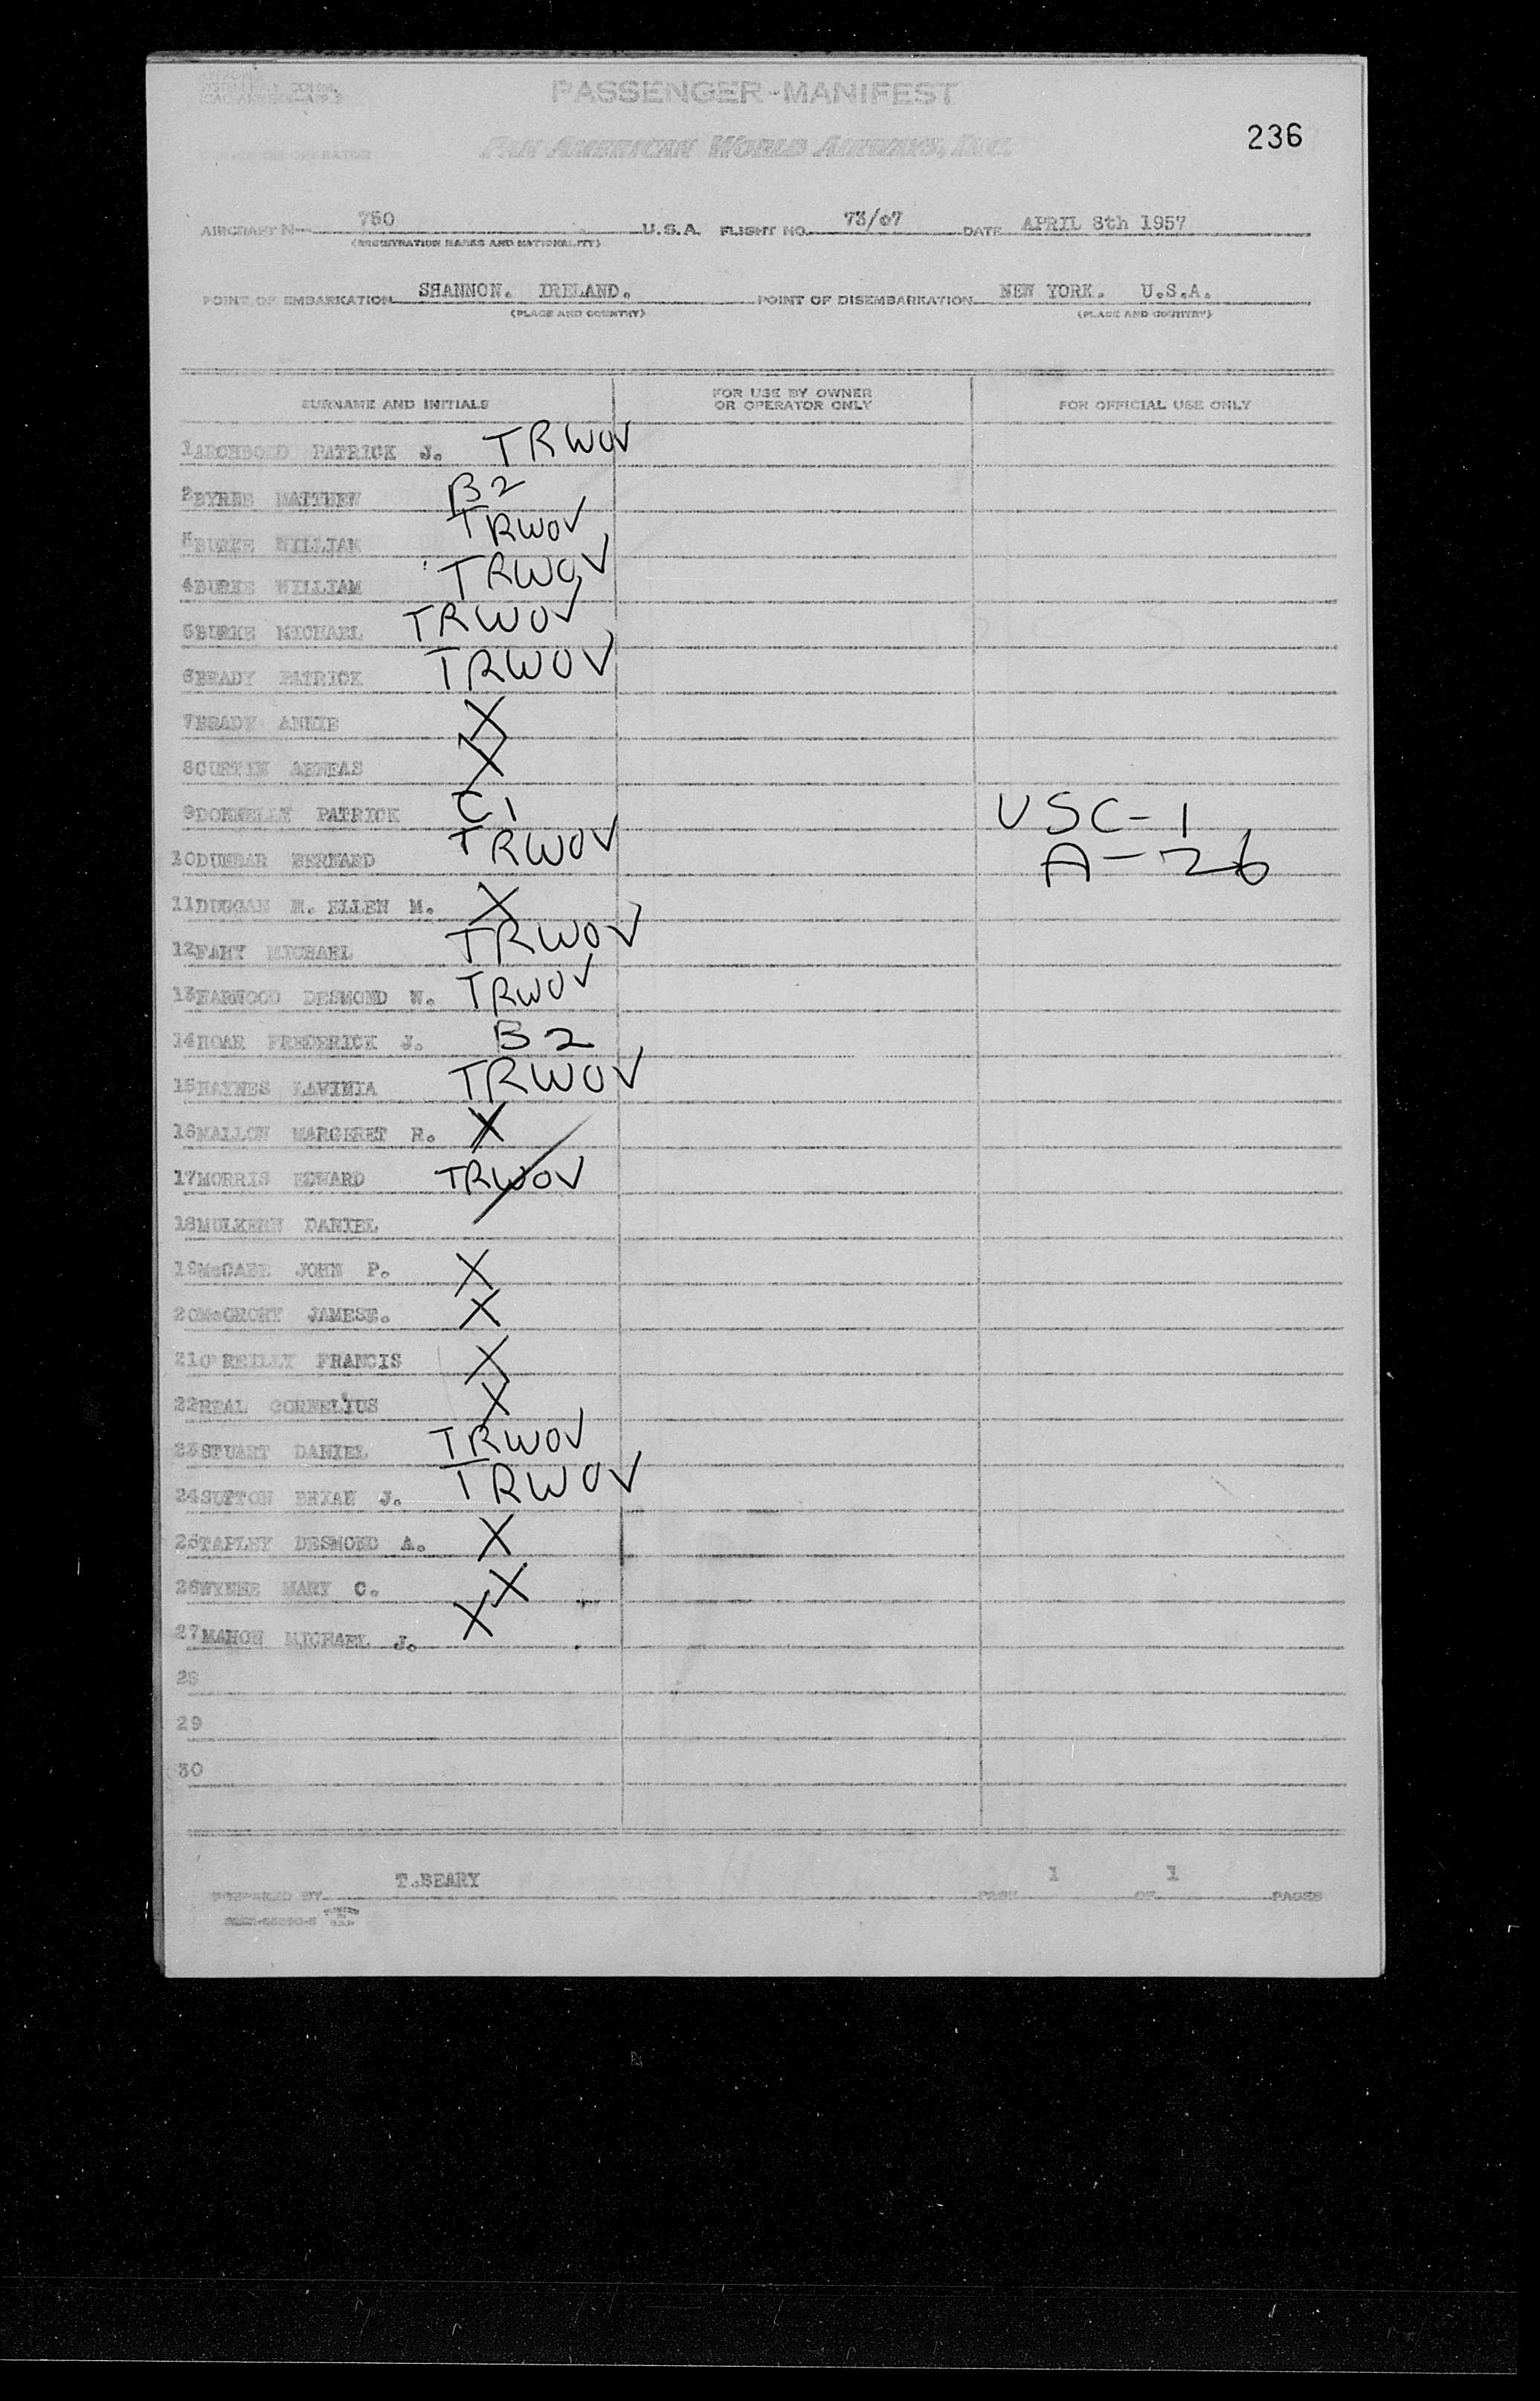 PASSENGER-MANIFEST
236
PAN AMERICAN WORLD AIRWAYS, INC.
AIRCRAFT N— 750 U.S.A. FLIGHT NO. 73/07 DATE APRIL 8th 1957
(REGISTRATION MARKS AND NATIONALITY)
POINT OF EMBARKATION SHANNON. IRELAND. POINT OF DISEMBARKATION NEW YORK. U.S.A.
(PLACE AND COUNTRY) (PLACE AND COUNTRY)
SURNAME AND INITIALS FOR USE BY OWNER OR OPERATOR ONLY FOR OFFICIAL USE ONLY
1 ARCHBOLD PATRICK J. TRWOV
2 BYRNE MATTHEW B2
3 BURKE WILLIAM TRWOV
4 BURKE WILLIAM TRWOV
5 BURKE MICHAEL TRWOV
6 BRADY PATRICK TRWOV
7 BRADY ANNIE X
8 CURTIN AENEAS X
9 DONNELLY PATRICK C1 USC-1
10 DUNBAR BERNARD TRWOV A-26
11 DUGGAN M. ELLEN M. X
12 FAHY MICHAEL TRWOV
13 HARWOOD DESMOND W. TRWOV
14 HOAR FREDERICK J. B2
15 HAYNES LAVINIA TRWOV
16 MALLON MARGERET R. X
17 MORRIS EDWARD TRWOV
18 MULKERN DANIEL
19 McCABE JOHN P. X
20 McGEORY JAMESE. X
21 O'REILLY FRANCIS X
22 REAL CORNELIUS X
23 STUART DANIEL TRWOV
24 SUTTON BRIAN J. TRWOV
25 TAPLEY DESMOND A. X
26 WYNNE MARY C. X
27 MAHON MICHAEL J. X
28
29
30
PREPARED BY T.BEARY PAGE 1 OF 1 PAGES